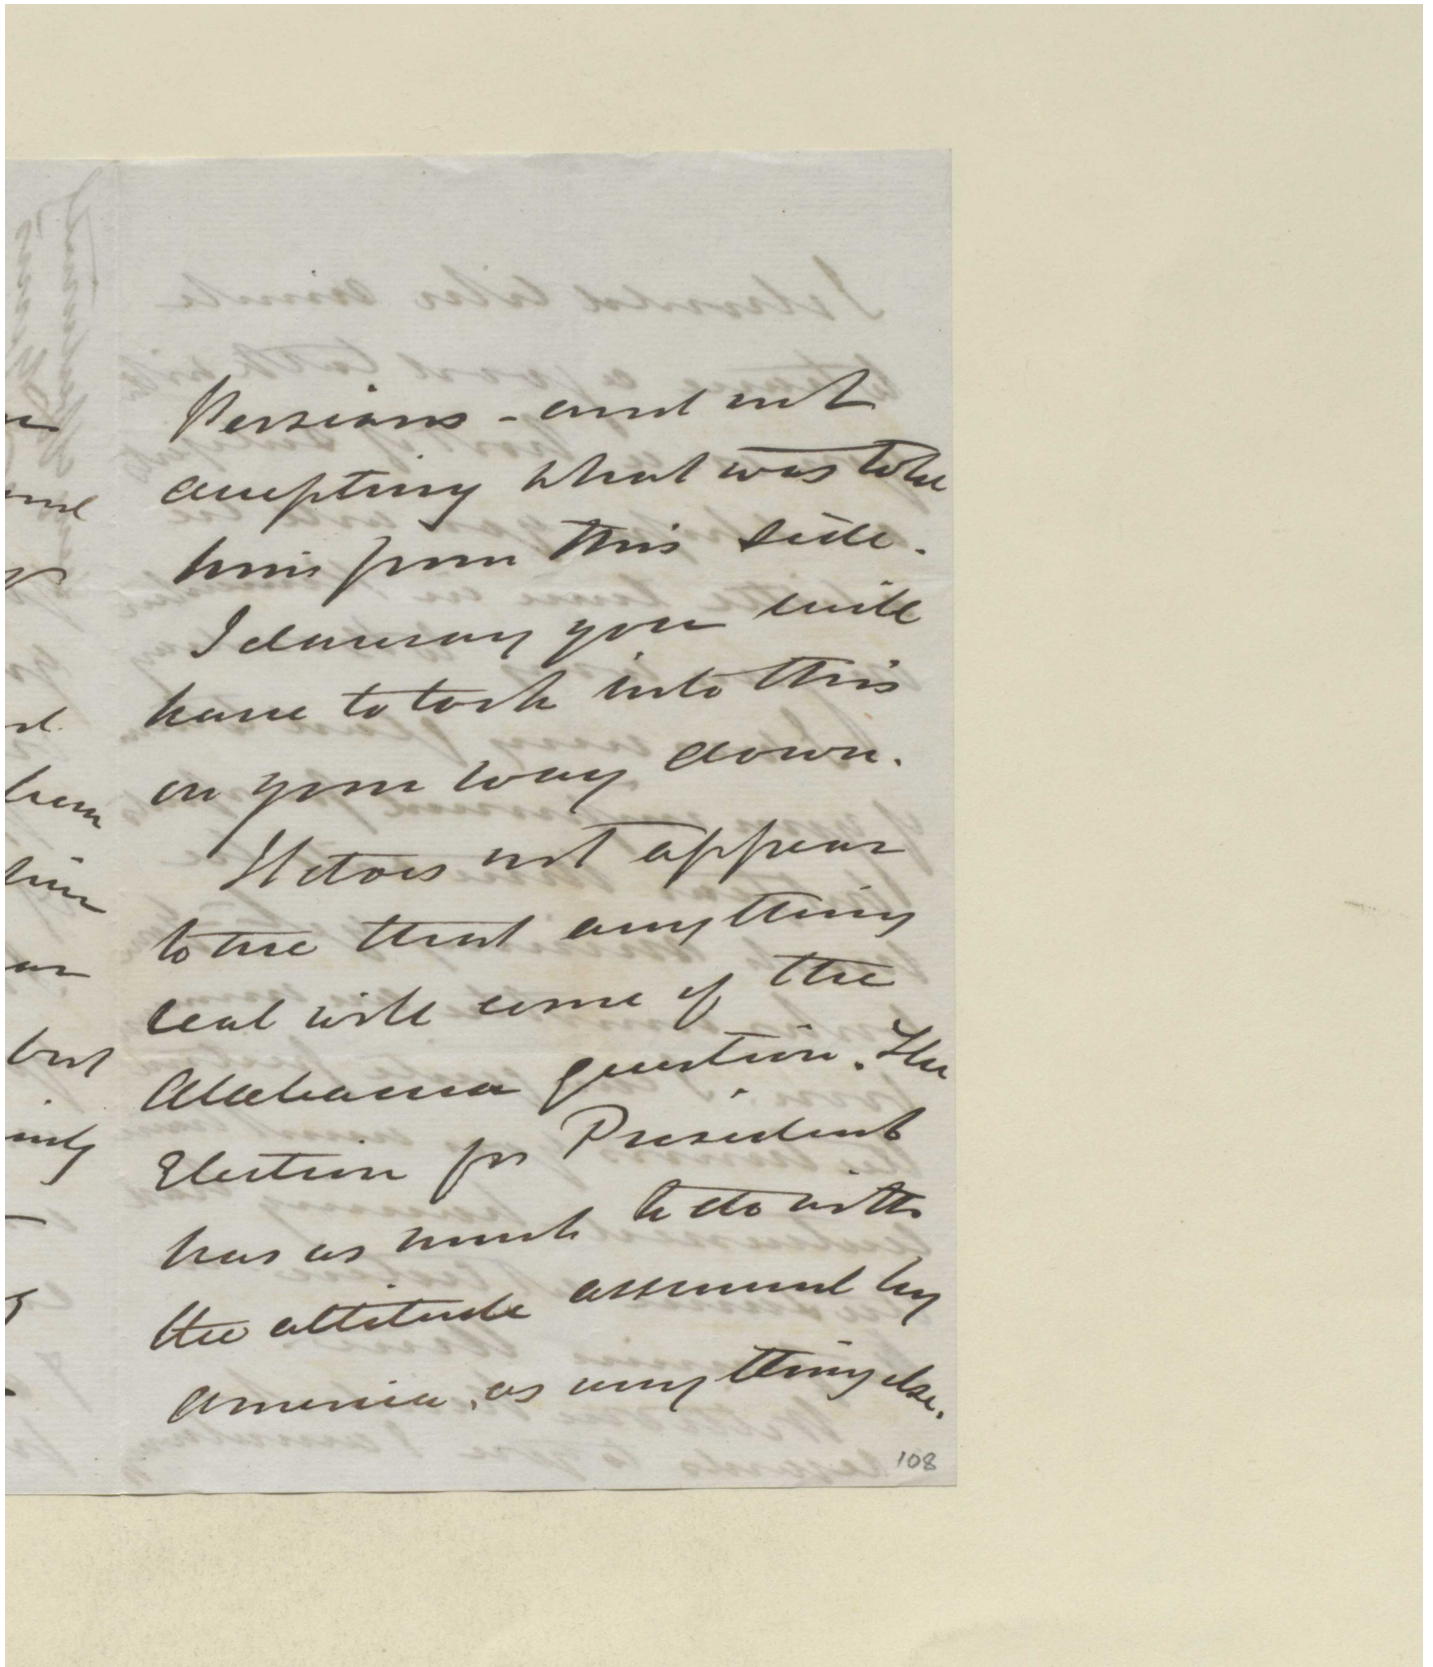 Persians - and not
accepting what was told
him from this side.
I daresay you will
have to look into this
on your way down.
It does not appear
to me that anything
real will come of the
Alabama question. The
Election for President
has as much to do with
the attitude assumed by
America, as anything else.
108